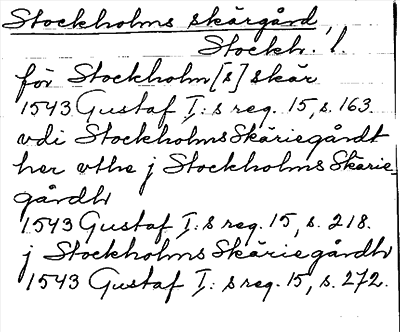 Stockholms skärgård,
Stockh. l.
för Stockholm[s] skär
1543 Gustaf I:s reg. 15, s. 163.
vdi Stockholms Skäriegårdt
her vthe j Stockholms Skärie-
gårdh
1543 Gustaf I:s reg. 15, s. 218.
j Stockholms Skäriegårdh
1543 Gustaf I: s reg. 15, s. 272.